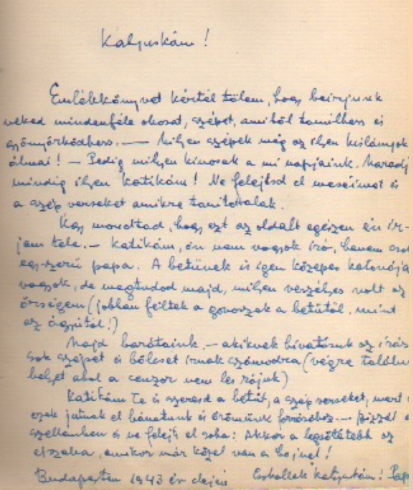 Katyuskám!
Emlékkönyvet kértél tőlem, hogy beirjunk
neked mindenféle okosat, szépet, amiből tanulhass és
gyönyörködhess. — Milyen szépek még az ilyen kislányok
álmai! — Pedig milyen kinosak a mi napjaink. Maradj
mindig ilyen Katikám! Ne felejtsd el meséimet és
a szép verseket amikre tanitottalak.
Kas mondtad, hogy ezt az oldalt egészen én ir-
jam tele. — Katikám, én nem vagyok iró, hanem csak
egyszerű papa. A betünek is igen közepes katonája
vagyok, de megtudod majd, milyen veszélyes volt az
őrségem (jobban féltek a gonoszok a betütől, mint
az ágyutól!)
Majd barátaink, — akiknek hivatásuk az irás
sok szépet és bölcset irnak számodra (végre találtunk
helyet ahol a cenzor nem les rájuk)
Katikám te is szeresd a betüt, a szép verseket, mert
ezek jutnak el bánatunk és örömünk forrásához. — bizzál a
szellemben és ne felejtsd el soha: Akkor a legsötétebb az
éjszaka, amikor már közel van a hajnal!
Budapesten 1943 év elején Csókollak Katyuskám! Papa